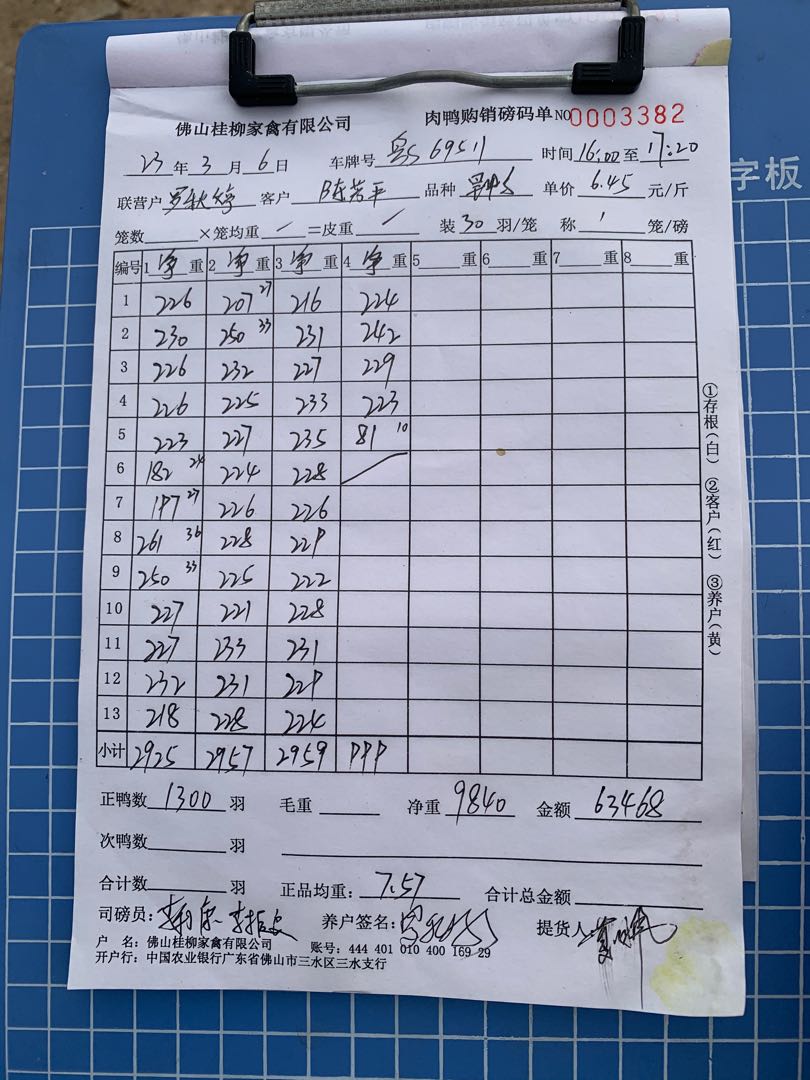 佛山桂柳家禽有限公司 肉鸭购销磅码单 NO 0003382
23 年 3 月 6 日 车牌号 粤S 69511 时间 16:00 至 17:20
联营户 客户 陈芳平 品种 单价 6.45 元/斤
笼数 ×笼均重 / =皮重 / 装 30 羽/笼 称 1 笼/磅
编号 1 净 重 2 净 重 3 净 重 4 净 重 5 重 6 重 7 重 8 重
1 226 207 27 216 224
2 230 250 33 231 242
3 226 232 227 229
4 226 225 233 223
5 223 227 235 81 10
6 182 24 224 228
7 197 27 226 226
8 261 36 228 229
9 250 33 225 222
10 227 221 228
11 227 233 231
12 232 231 229
13 218 228 224
小计 2925 2957 2959 999
正鸭数 1300 羽 毛重 净重 9840 金额 63468
次鸭数 羽
合计数 羽 正品均重: 7.57 合计总金额
司磅员: 养户签名: 提货人:
户 名: 佛山桂柳家禽有限公司 账号: 444 401 010 400 169 29
开户行: 中国农业银行广东省佛山市三水区三水支行
①存根(白) ②客户(红) ③养户(黄)
字板